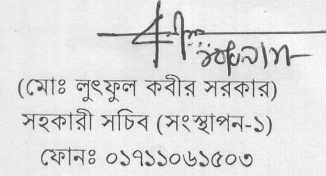 (মোঃ লুৎফুল কবীর সরকার)
সহকারী সচিব (সংস্থাপন-১)
ফোনঃ ০১৭১১০৬১৫০৩